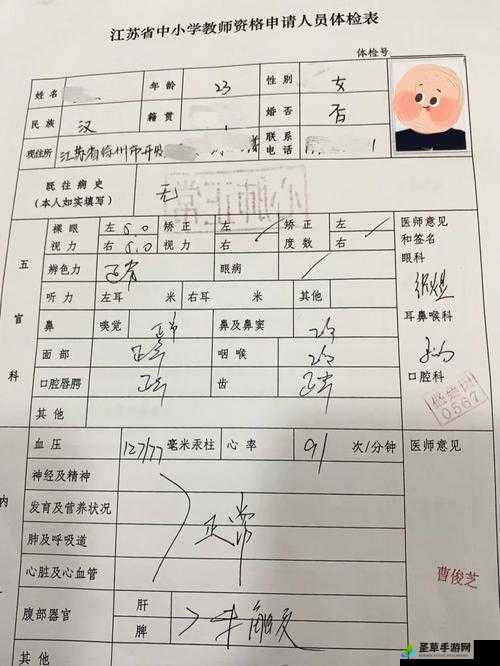 江苏省中小学教师资格申请人员体检表
体检号
姓名 年龄 23 性别 女
民族 汉 籍贯 婚否 否
现住所 江苏省徐州市开 联系电话
既往病史
(本人如实填写) 无
五官科
裸眼视力 左 5.0 右 5.0 矫正视力 左 右 矫正度数 左 右 医师意见和签名
辨色力 正常 眼病 眼科
听力 左耳 米 右耳 米 其他
鼻 嗅觉 正常 鼻及鼻窦 耳鼻喉科
面部 正常 咽喉
口腔唇腭 正常 齿 正常 口腔科
其他
0567
内
血压 127/77 毫米汞柱 心率 91 次/分钟 医师意见
神经及精神
发育及营养状况
肺及呼吸道 正常
心脏及心血管
曹俊芝
腹部器官 肝 脾 未触及
其他
圣草手游网